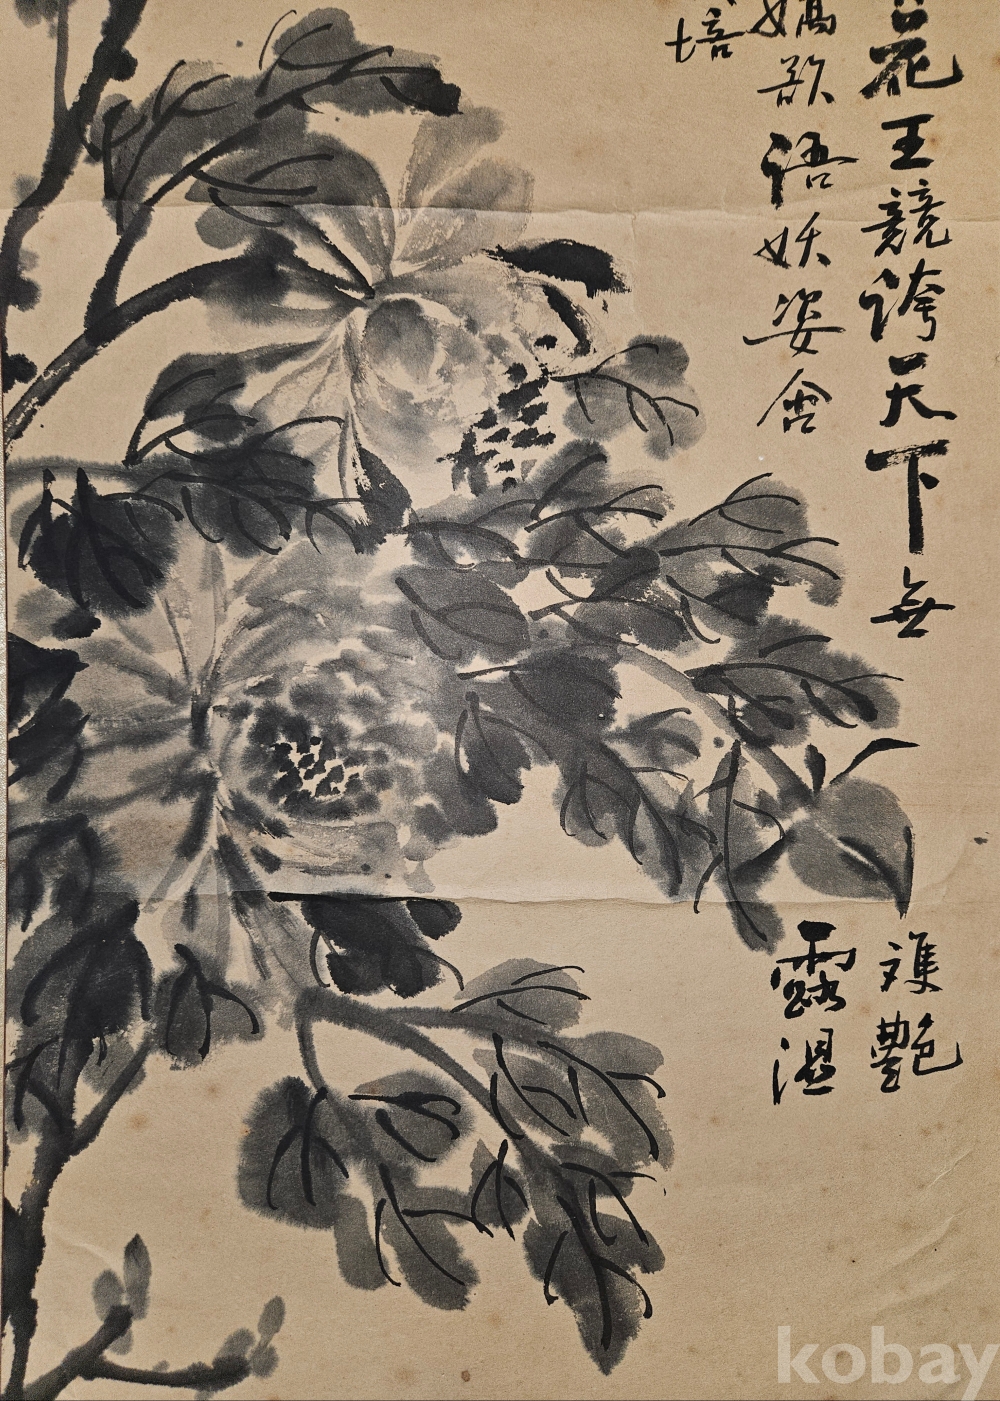 花王競誇天下無雙艷
嬌欲語妖姿含露濕
培
kobay